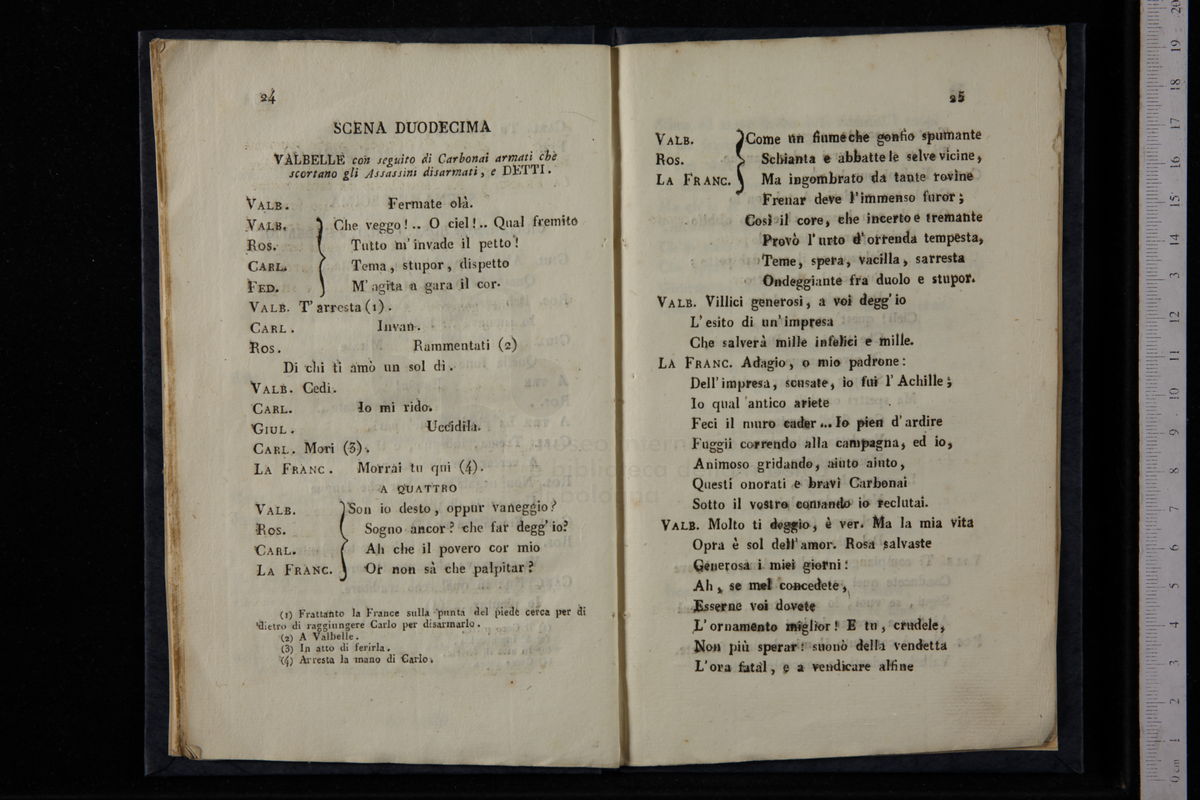 24
SCENA DUODECIMA
VALBELLE con seguito di Carbonai armati che
scortano gli Assassini disarmati, e DETTI.
VALB. Fermate olà.
VALB. Che veggo!.. O ciel!.. Qual fremito
ROS. Tutto m'invade il petto!
CARL. Tema, stupor, dispetto
FED. M'agita a gara il cor.
VALB. T'arresta (1).
CARL. Invan.
ROS. Rammentati (2)
Di chi ti amò un sol dì.
VALB. Cedi.
CARL. Io mi rido.
GIUL. Uccidila.
CARL. Mori (3).
LA FRANC. Morrai tu qui (4).
A QUATTRO
VALB. Son io desto, oppur vaneggio?
ROS. Sogno ancor? che far degg'io?
CARL. Ah che il povero cor mio
LA FRANC. Or non sà che palpitar?
(1) Frattanto la France sulla punta del piede cerca per di
dietro di raggiungere Carlo per disarmarlo.
(2) A Valbelle.
(3) In atto di ferirla.
(4) Arresta la mano di Carlo.
25
VALB. Come un fiume che gonfio spumante
ROS. Schianta e abbatte le selve vicine,
LA FRANC. Ma ingombrato da tante rovine
Frenar deve l'immenso furor;
Così il core, che incerto e tremante
Provò l'urto d'orrenda tempesta,
Teme, spera, vacilla, sarresta
Ondeggiante fra duolo e stupor.
VALB. Villici generosi, a voi degg'io
L'esito di un'impresa
Che salverà mille infelici e mille.
LA FRANC. Adagio, o mio padrone:
Dell'impresa, scusate, io fui l'Achille;
Io qual antico ariete
Feci il muro cader... Io pien d'ardire
Fuggii correndo alla campagna, ed io,
Animoso gridando, aiuto aiuto,
Questi onorati e bravi Carbonai
Sotto il vostro comando io reclutai.
VALB. Molto ti deggio, è ver. Ma la mia vita
Opra è sol dell'amor. Rosa salvaste
Generosa i miei giorni:
Ah, se mel concedete,
Esserne voi dovete
L'ornamento miglior! E tu, crudele,
Non più sperar: suonò della vendetta
L'ora fatal, e a vendicare alfine